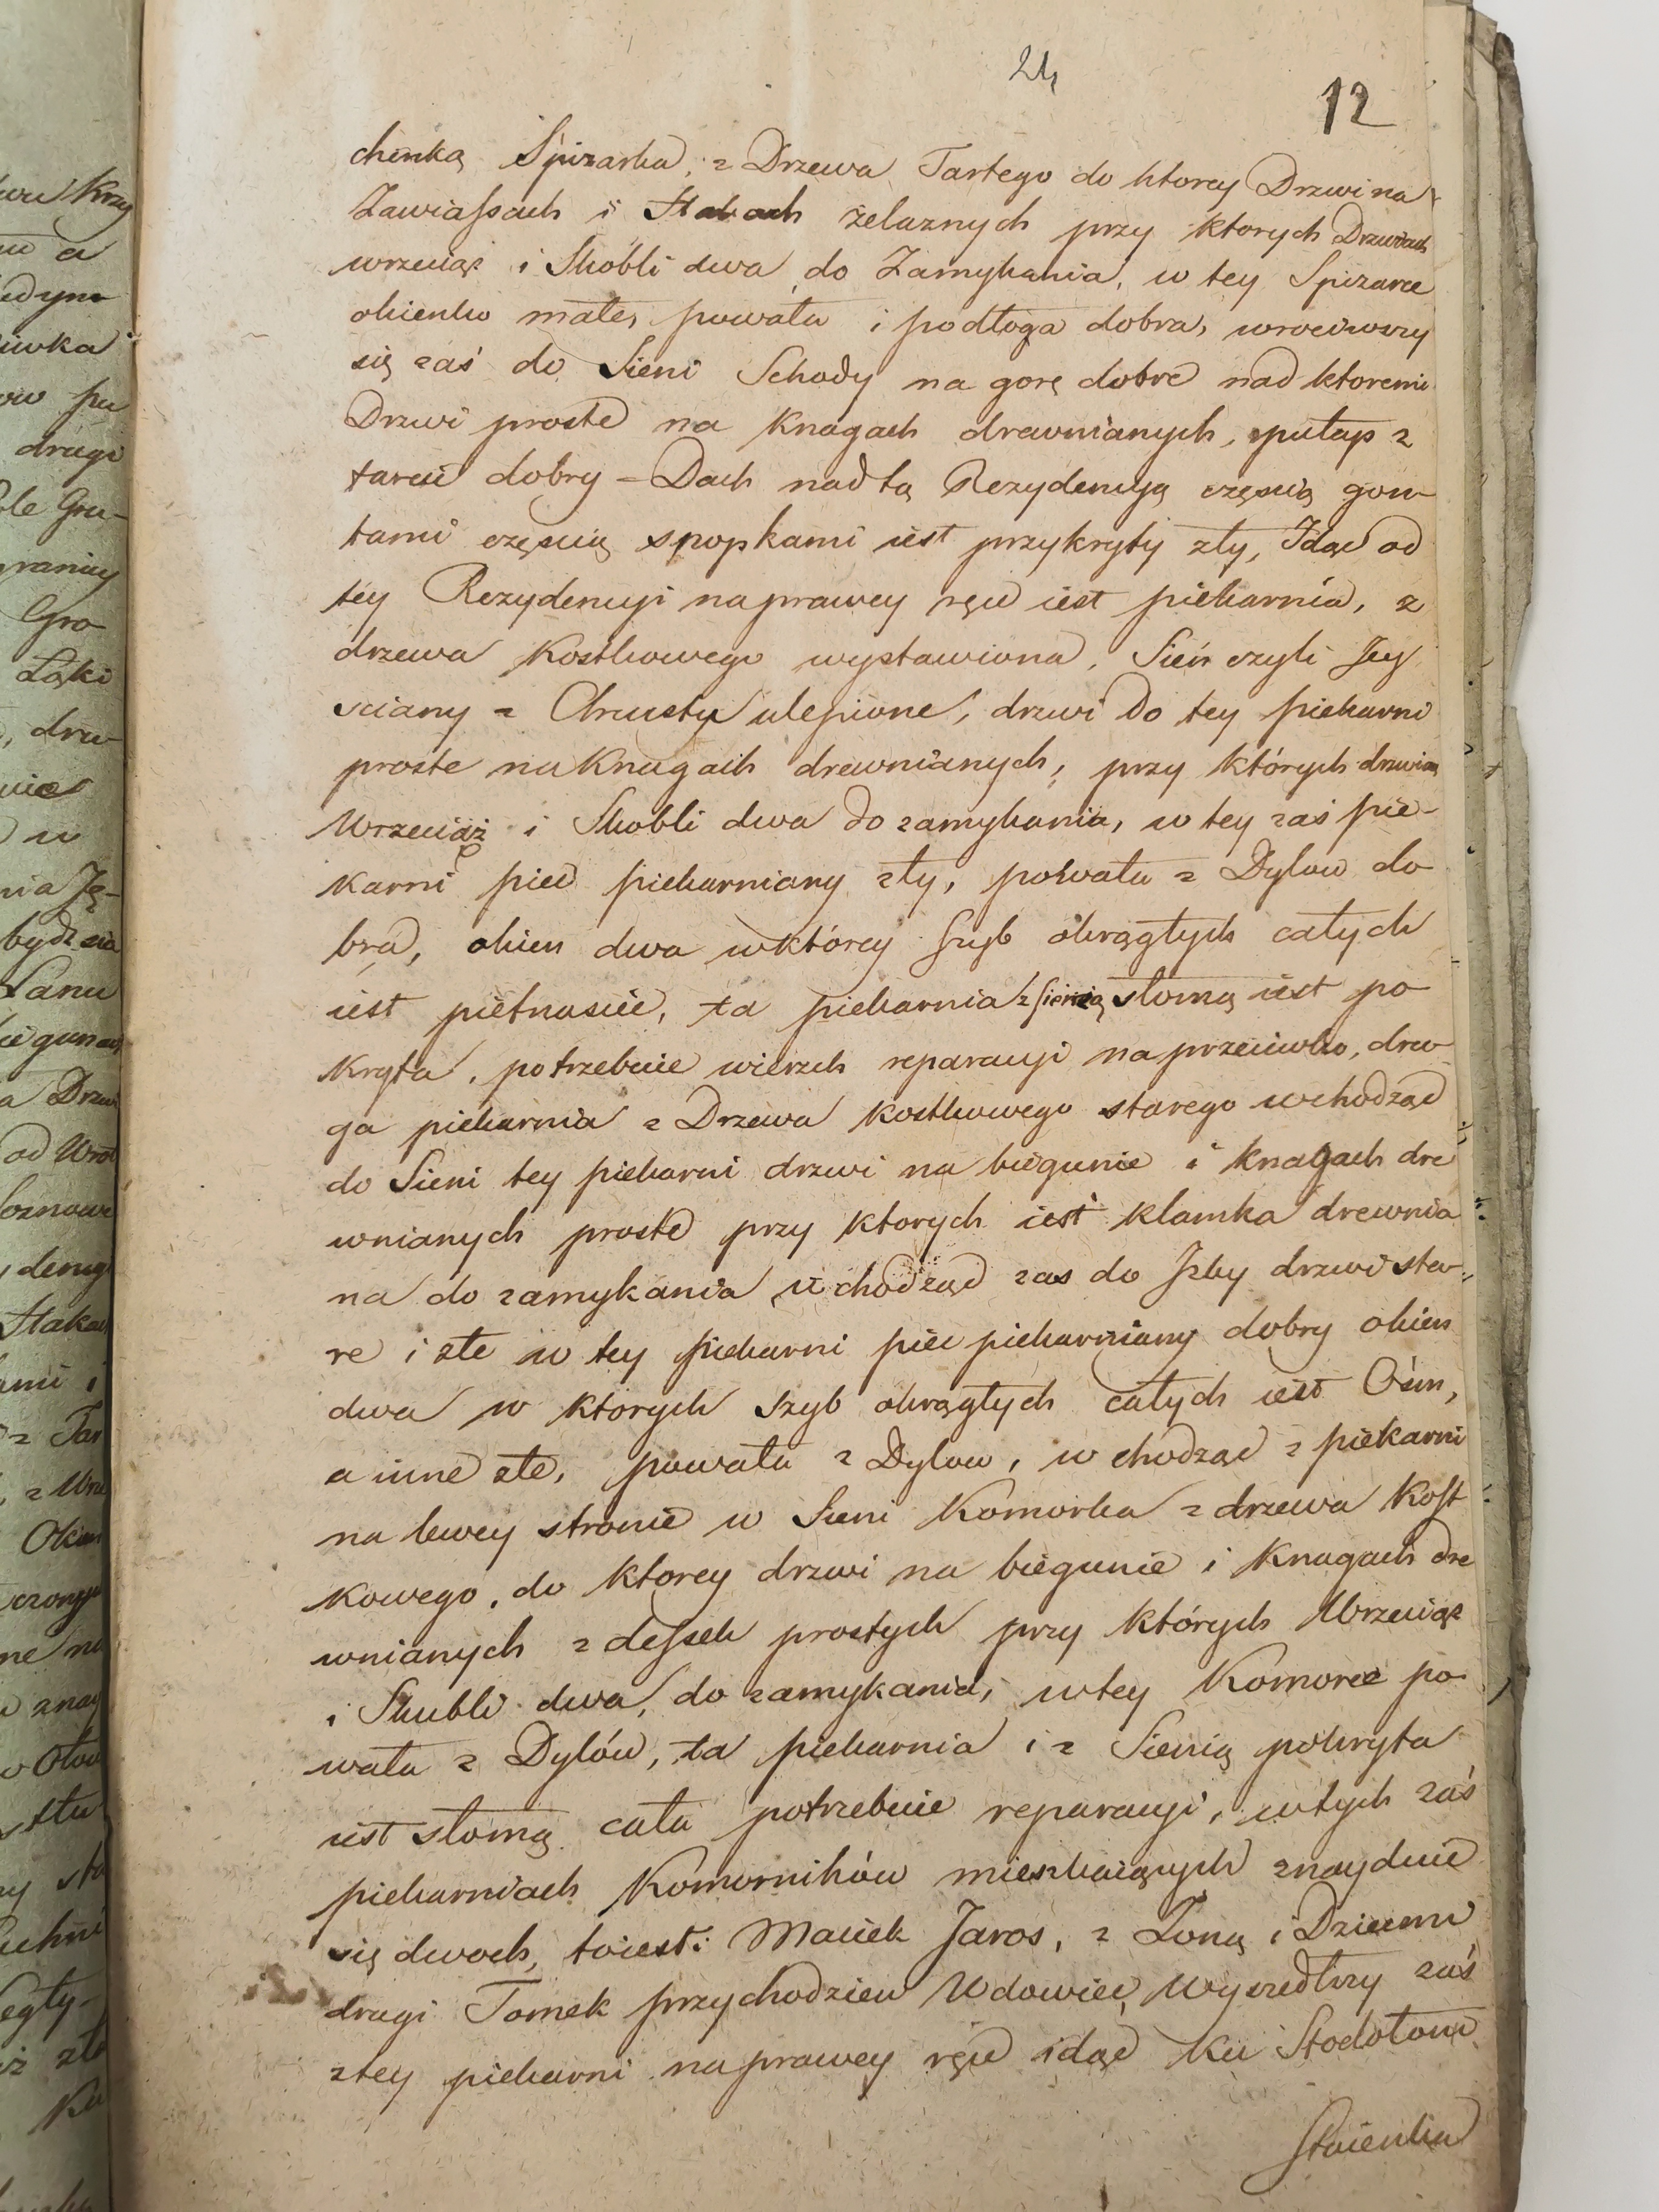 24
12
chenką Spizarka, z Drzewa Tartego do ktorey Drzwi na
Zawiassach i Hakach żelaznych przy ktorych Drzwiach
wrzeciąz i Skobli dwa do Zamykania, w tey Spizarce
okienko małe, powała i podłoga dobra, wrociwszy
się zaś do Sieni Schody na gorę dobre nad ktoremi
Drzwi proste na Knagach drewnianych, pułap z
tarcic dobry = Dach nad tą Rezydencyą częscią gon-
tami częscią spopkami iest przykryty zły, Idąc od
tey Rezydencyi na prawey ręce iest piekarnia, z
drzewa Kostkowego wystawiona, Sień czyli Jey
sciany z Chrustu ulepione, drzwi do tey piekarni
proste na Knagach drewnianych, przy których drzwiach
Wrzeciąż i Skobli dwa do zamykania, w tey zaś pie-
karni piec piekarniany zły, powała z Dylow do
bra, okien dwa w którey szyb okrągłych całych
iest piętnascie, ta piekarnia z sienią słomą iest po
kryta, potrzebuie wierzch reparacyi na przeciwko, dru
ga piekarnia z Drzewa kostkowego starego wchodząc
do Sieni tey piekarni drzwi na biegunie i knagach dre
wnianych proste przy ktorych iest klamka drewnia
na do zamykania, wchodząc zas do Jzby drzwi sta-
re i złe w tey piekarni piec piekarniany dobry okien
dwa w ktorych szyb okrągłych całych iest Ośm,
a inne złe, powała z Dylow, wchodząc z piekarni
na lewey stronie w Sieni Komorka z drzewa Kost
kowego, do ktorey drzwi na biegunie i Knagach dre
wnianych z dessek prostych przy których Wrzeciąz
i Skobli dwa, do zamykania, w tey Komorce po
wała z Dylów, ta piekarnia i z Sienią pokryta
iest słomą cała potrzebuie reparacyi, w tych zaś
piekarniach Komorników mieszkaiących znayduie
się dwoch, toiest: Maciek Jaros, z Zoną i Dziecmi
drugi Tomek przychodzien Wdowiec, Wyszedłszy zaś
z tey piekarni na prawey ręce idąc ku Stodołom
Staienka